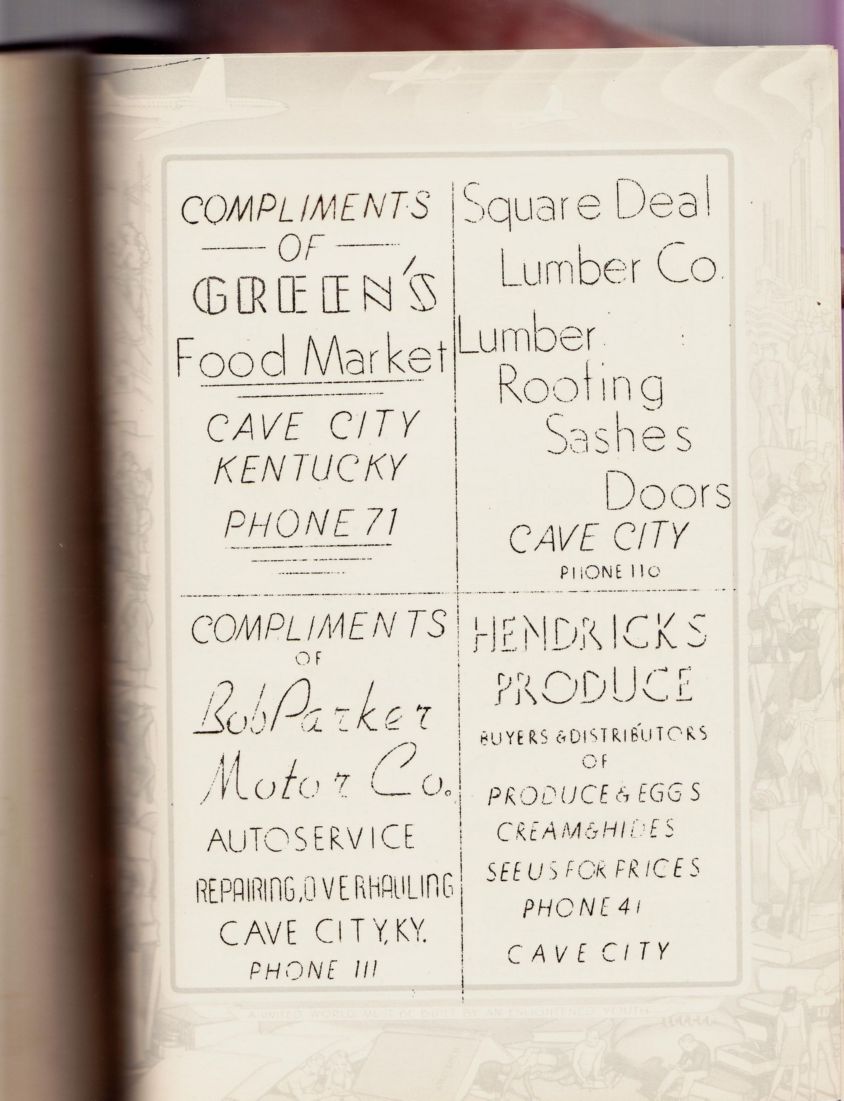 COMPLIMENTS
OF
GREEN'S
Food Market
CAVE CITY
KENTUCKY
PHONE 71
Square Deal
Lumber Co.
Lumber
Roofing
Sashes
Doors
CAVE CITY
PHONE 110
COMPLIMENTS
OF
Bob Parker
Motor Co.
AUTO SERVICE
REPAIRING, OVERHAULING
CAVE CITY, KY.
PHONE 111
HENDRICKS
PRODUCE
BUYERS & DISTRIBUTORS
OF
PRODUCE & EGGS
CREAM & HIDES
SEE US FOR PRICES
PHONE 41
CAVE CITY
A UNITED WORLD MUST BE BUILT BY AN ENLIGHTENED YOUTH